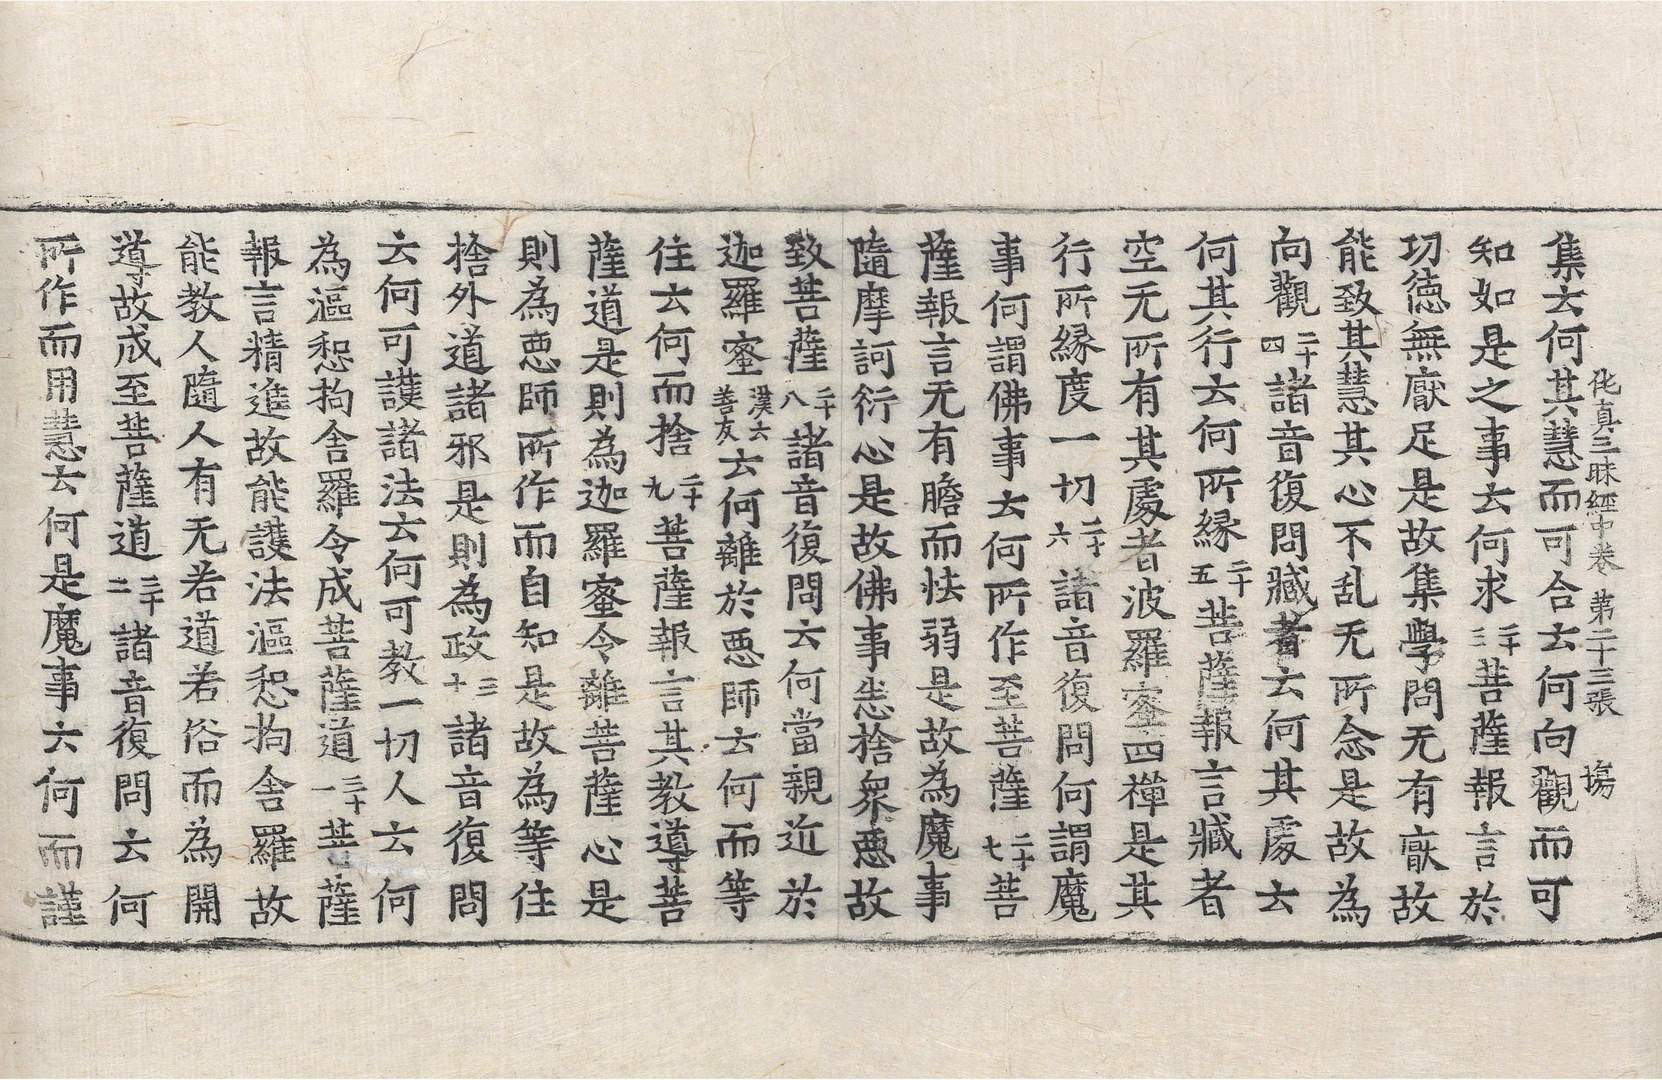 他真三昧經中卷 第二十三張 塲
集云何其慧而可合云何向觀而可
知如是之事云何求二十三菩薩報言於
切德無猒足是故集學問无有猒故
能致其慧其心不乱无所念是故為
向觀二十四諸音復問藏者云何其處云
何其行云何所縁二十五菩薩報言藏者
空无所有其處者波羅蜜四禪是其
行所縁度一切二十六諸音復問何謂魔
事何謂佛事云何所作至菩薩二十七菩
薩報言无有膽而怯弱是故為魔事
隨摩訶衍心是故佛事恙捨衆惡故
致菩薩二十八諸音復問云何當親近於
迦羅蜜漢云善友云何離於惡師云何而等
住云何而捨二十九菩薩報言其教導菩
薩道是則為迦羅蜜令離菩薩心是
則為惡師所作而自知是故為等住
捨外道諸邪是則為政三十諸音復問
云何可護諸法云何可教一切人云何
為漚惒拘舍羅令成菩薩道三十一菩薩
報言精進故能護法漚惒拘舍羅故
能教人隨人有无若道若俗而為開
導故成至菩薩道三十二諸音復問云何
所作而用慧云何是魔事云何而謹